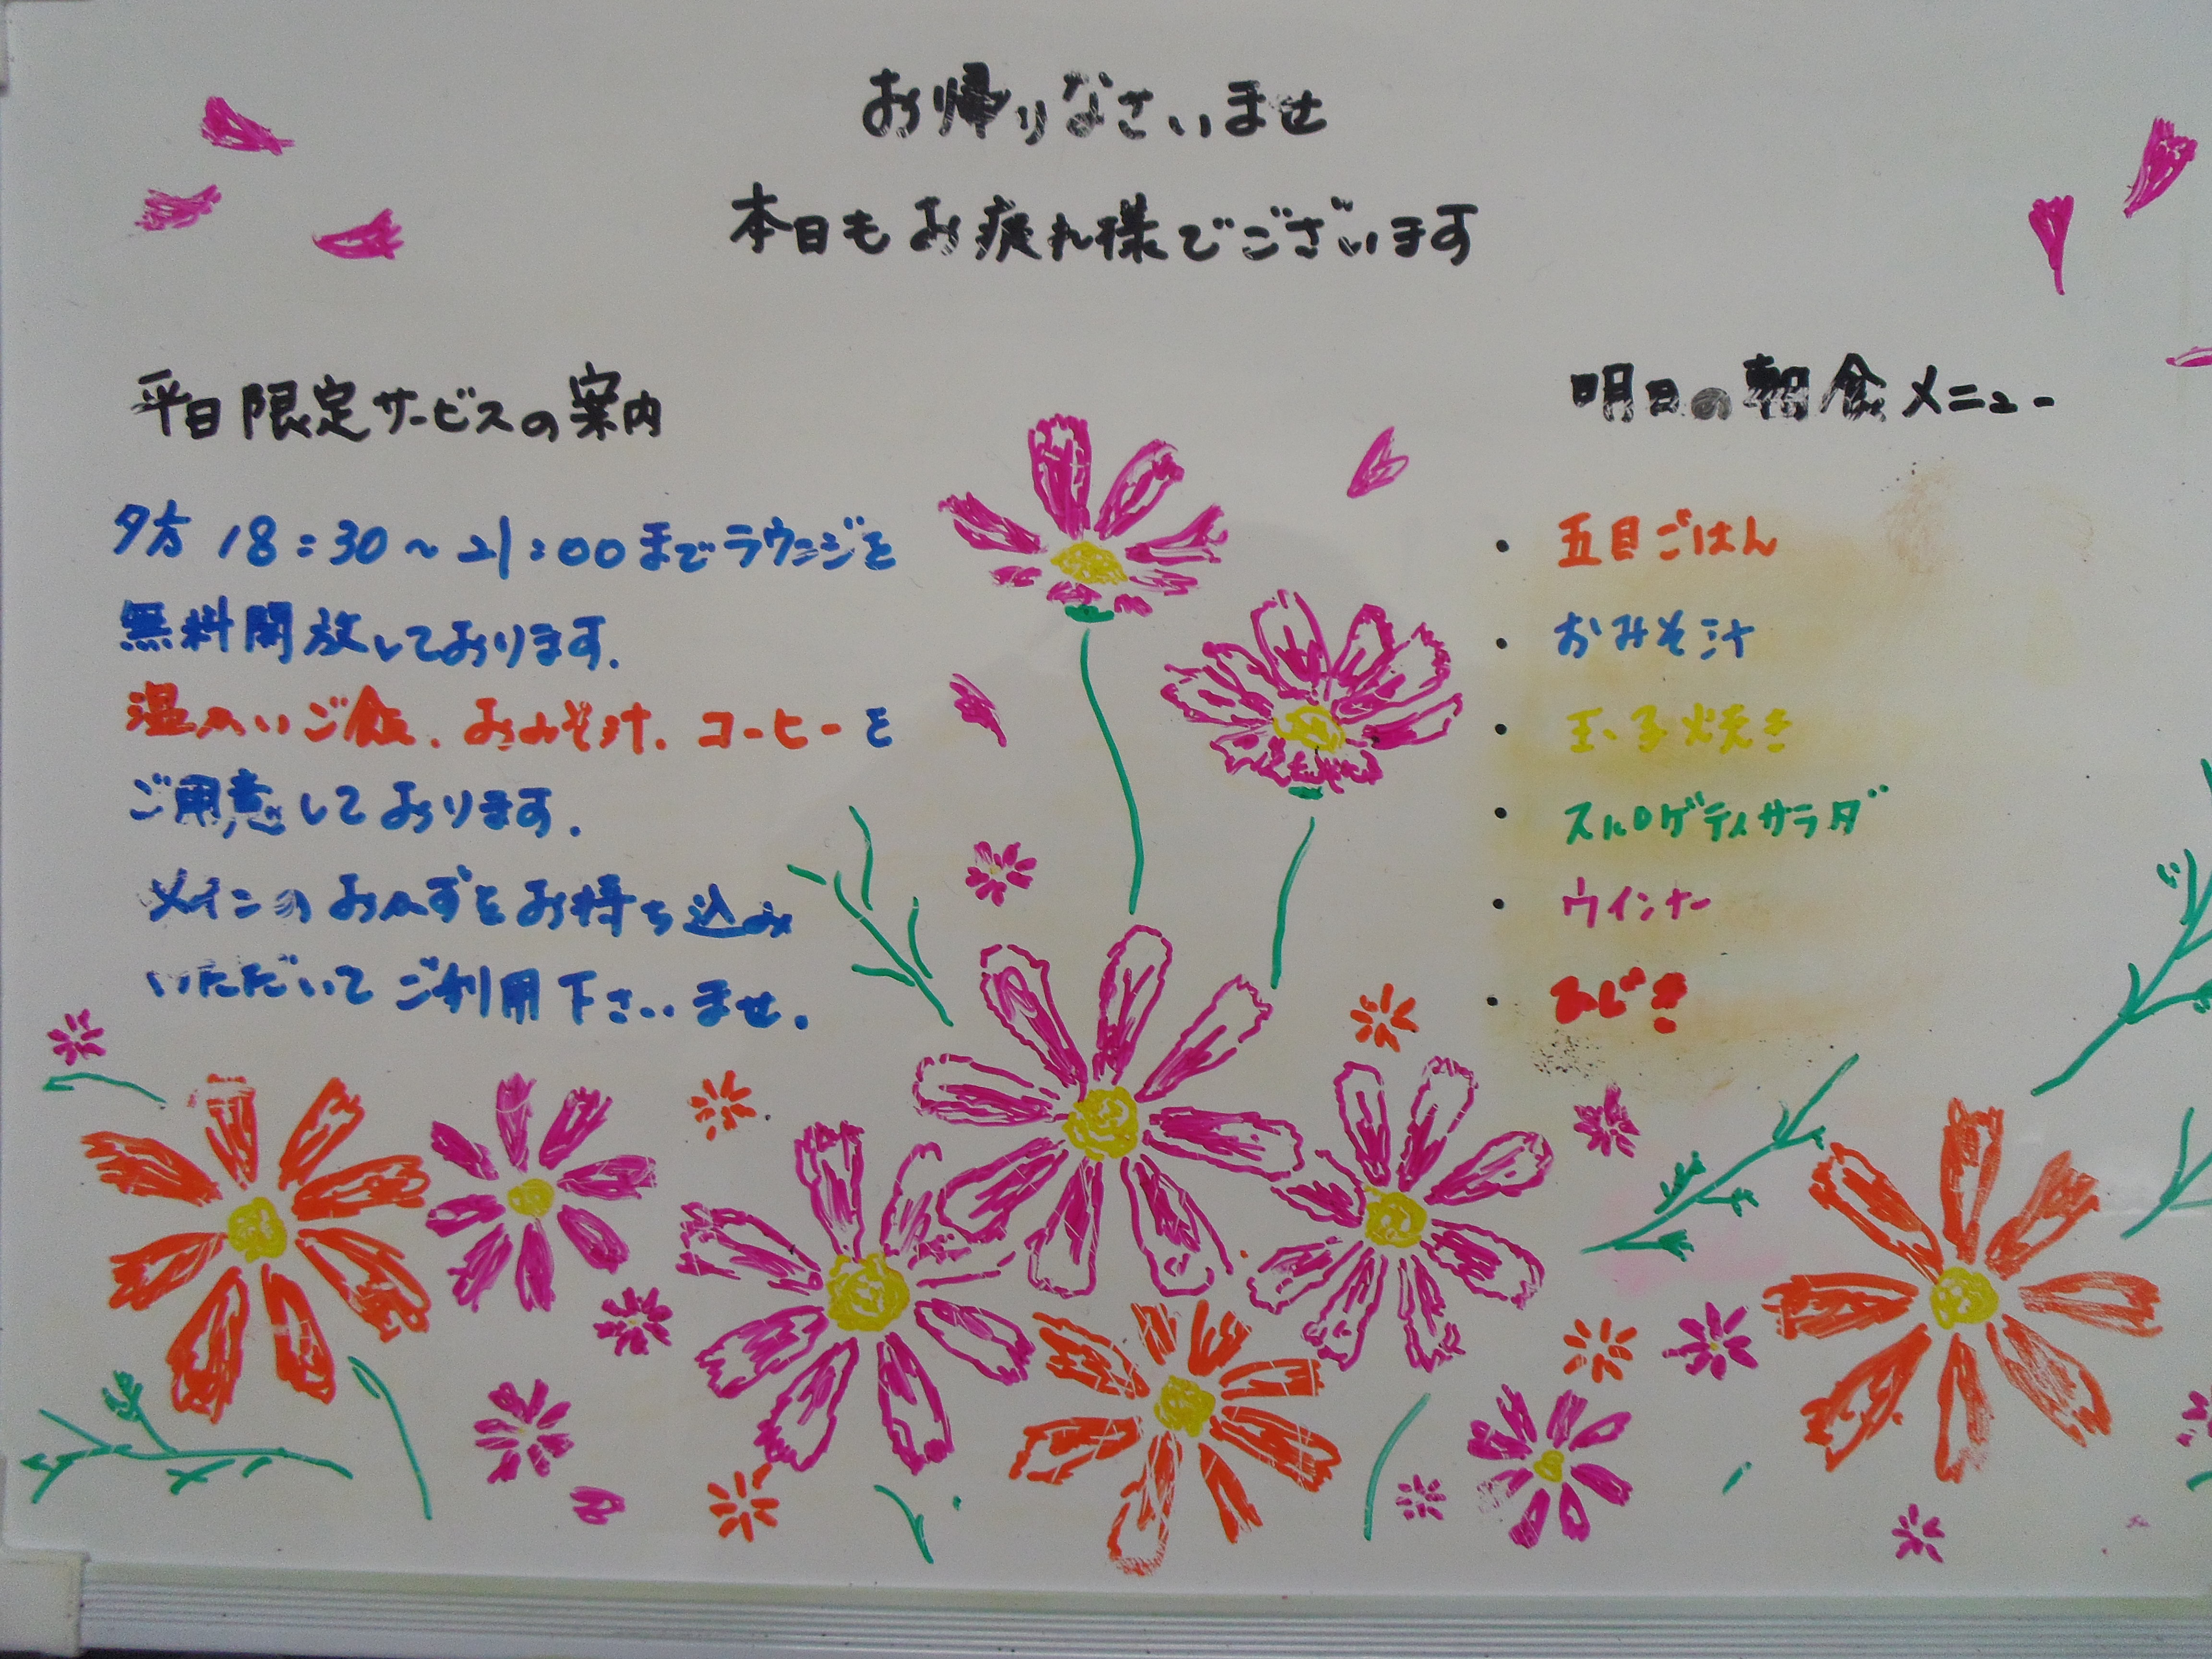 お帰りなさいませ
本日もお疲れ様でございます
平日限定サービスの案内
夕方 18:30～21:00までラウンジを
無料開放しております.
温かいご飯.おみそ汁.コーヒーを
ご用意しております.
メインのおかずをお持ち込み
いただいてご利用下さいませ.
明日の朝食メニュー
・五目ごはん
・おみそ汁
・玉子焼き
・スパゲティサラダ
・ウインナー
・ひじき